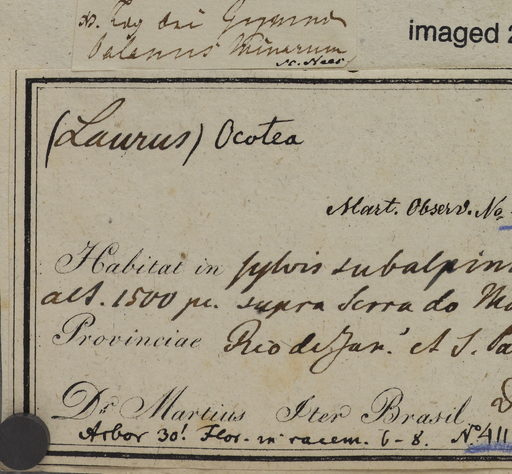 imaged 2
N. Nees
(Laurus) Ocotea
Mart. Observ. No.
Habitat in sylvis subalpin
alt. 1500 pe. supra Serra do Ma
Provinciae Rio de Jan. et S. Pa
Dr. Martius Iter Brasil.
Arbor 30! Flor. in racem. 6-8. No 411